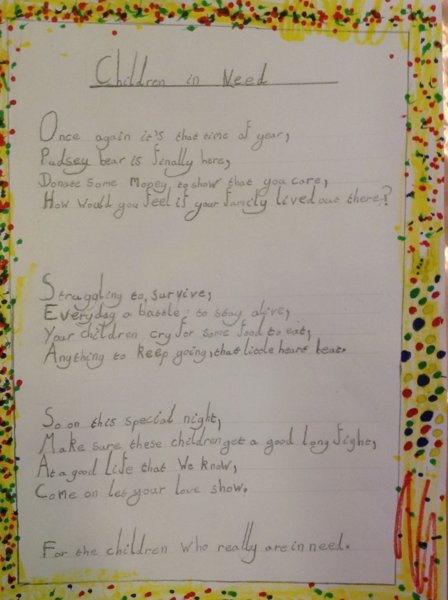 Children in Need
Once again it's that time of year,
Pudsey bear is finally here,
Donate Some Money, to show that you care,
How would you feel if your family lived out there?
Struggling to survive,
Everyday a battle to stay alive,
Your children cry for some food to eat,
Anything to keep going, that little heart beat.
So on this special night,
Make sure these children get a good long fight,
At a good life that We know,
Come on let your love show.
For the children who really are in need.